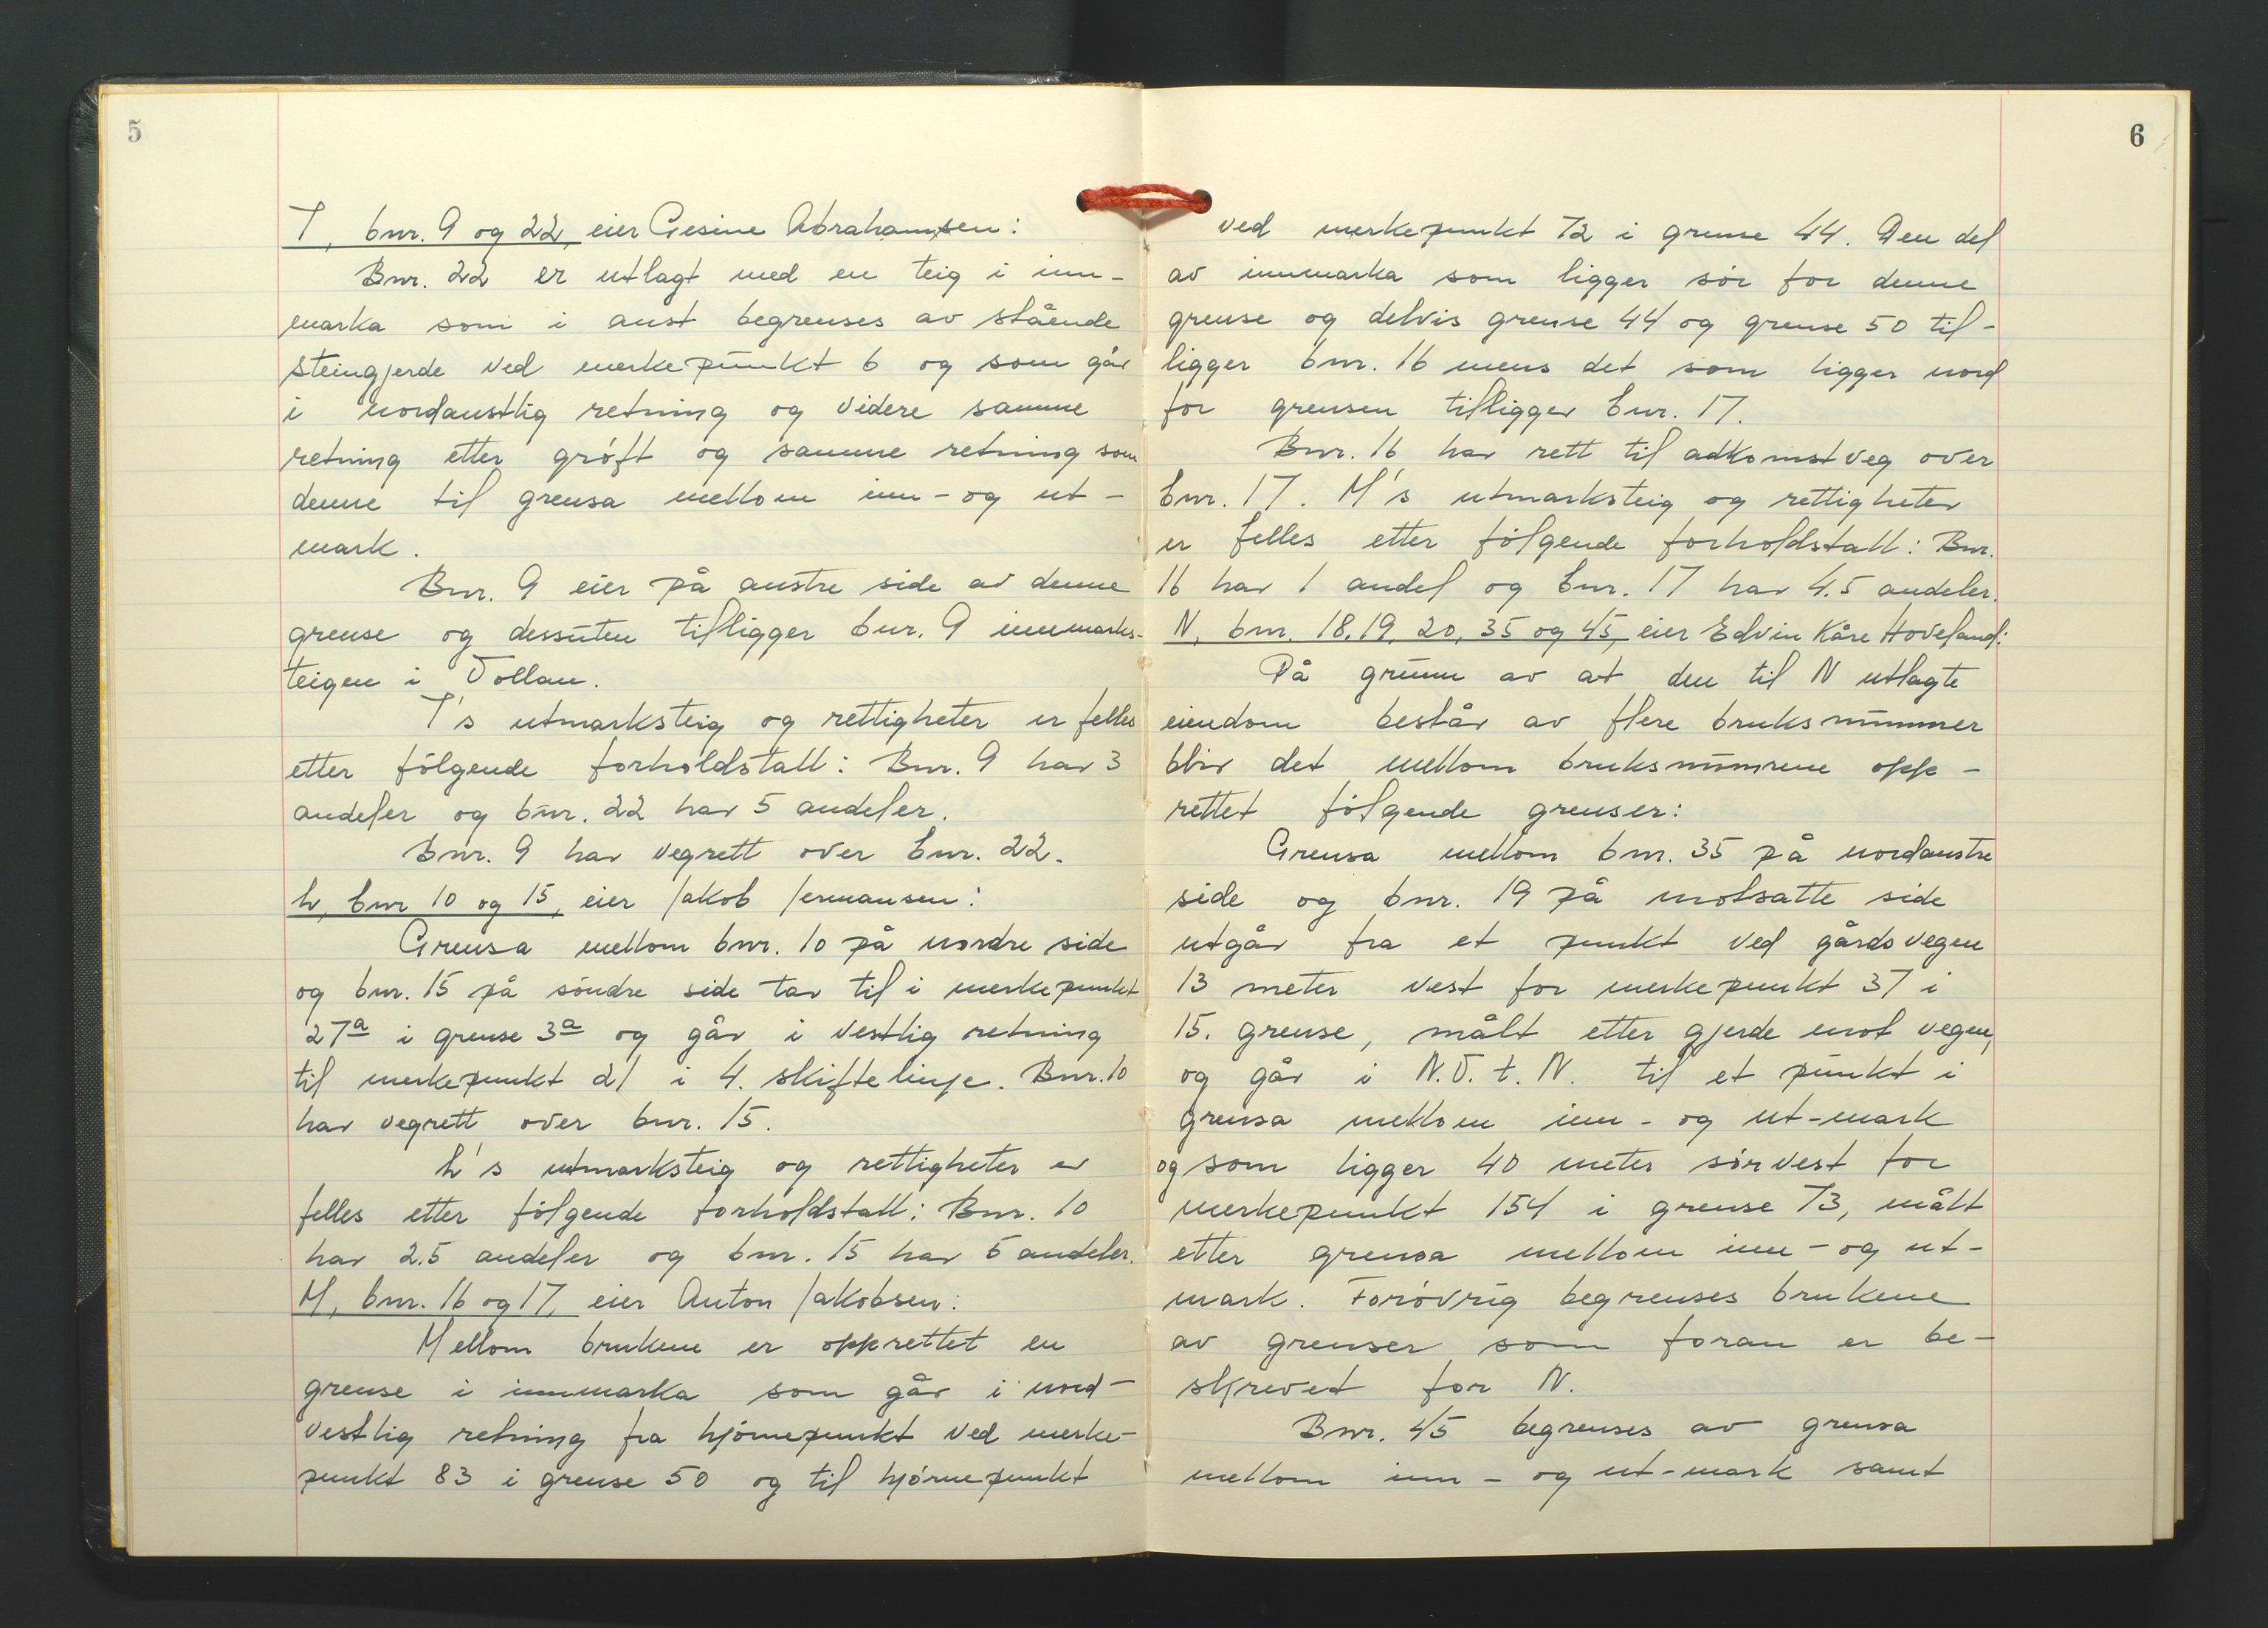 5
T, bnr. 9 og 22, eier Gesine Abrahamsen:
Bnr. 22 er utlagt med en teig i inn-
marka som i aust begrenses av stående
steingjerde ved merkepunkt 6 og som går
i nordaustlig retning og videre samme
retning etter grøft og samme retning som
denne til grensa mellom inn- og ut-
mark.
Bnr. 9 eier på austre side av denne
grense og dessuten tilligger bnr. 9 innmarks-
teigen i Vollan.
T's utmarksteig og rettigheter er felles
etter følgende forholdstall: Bnr. 9 har 3
andeler og bnr. 22 har 5 andeler.
Bnr. 9 har vegrett over bnr. 22.
L, bnr 10 og 15, eier Jakob Jermansen:
Grensa mellom bnr. 10 på nordre side
og bnr. 15 på søndre side tar til i merkepunkt
27a i grense 3a og går i vestlig retning
til merkepunkt 21 i 4. skiftelinje. Bnr. 10
har vegrett over bnr. 15.
L's utmarksteig og rettigheter er
felles etter følgende forholdstall: Bnr. 10
har 2.5 andeler og bnr. 15 har 5 andeler.
M, bnr. 16 og 17, eier Anton Jakobsen:
Mellom brukene er opprettet en
grense i innmarka som går i nord-
vestlig retning fra hjørnepunkt ved merke-
punkt 83 i grense 50 og til hjørnepunkt
6
ved merkepunkt 72 i grense 44. Den del
av innmarka som ligger sør for denne
grense og delvis grense 44 og grense 50 til-
ligger bnr. 16 mens det som ligger nord
for grensen tilligger bnr. 17.
Bnr. 16 har rett til adkomstveg over
bnr. 17. M's utmarksteig og rettigheter
er felles etter følgende forholdstall: Bnr.
16 har 1 andel og bnr. 17 har 4.5 andeler.
N, bnr. 18, 19, 20, 35 og 45, eier Edvin Kåre Hoveland:
På grunn av at den til N utlagte
eiendom består av flere bruksnummer
blir det mellom bruksnumrene opp-
rettet følgende grenser:
Grensa mellom bnr. 35 på nordaustre
side og bnr. 19 på motsatte side
utgår fra et punkt ved gårdsvegen
13 meter vest for merkepunkt 37 i
15. grense, målt etter gjerde mot vegen,
og går i N.V. t. N. til et punkt i
grensa mellom inn- og ut-mark
og som ligger 40 meter sørvest for
merkepunkt 154 i grense 73, målt
etter grensa mellom inn- og ut-
mark. Forøvrig begrenses brukene
av grenser som foran er be-
skrevet for N.
Bnr. 45 begrenses av grensa
mellom inn- og ut-mark samt